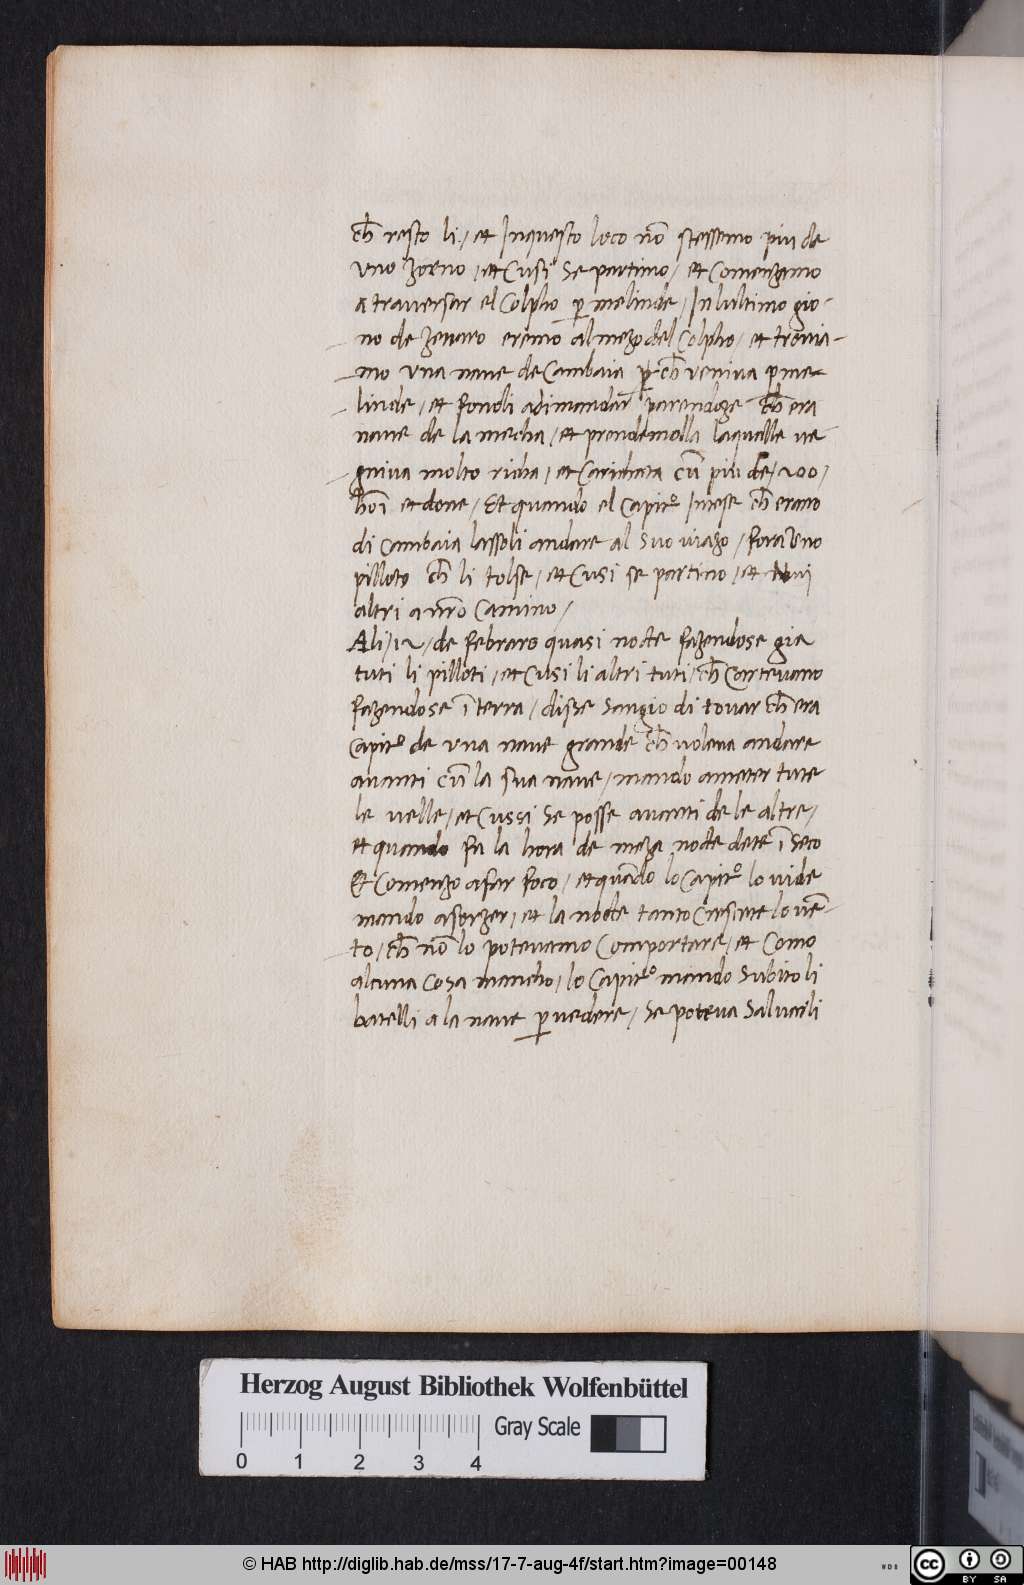 ch̅ resto li / et Inquesto loco no̅ stessemo piu de
vno zorno / et Cusi Se partimo / et Comenzamo
a trauersar el Colpho p̱ melinde / In lultimo gio-
no de zenaro eremo al mezo del Colpho / et trouia-
mo vna naue de Cambaia p̱ ch̅ veniua p̱ me-
linde / et foroli adimandar parendoze ch̅ era
naue de la mecha / et prendemolla laqualle ue
gniua molto richa / et Carichata cu̅ piu de / 200 /
ho̅i et done / Et quando el Capit.º Intese ch̅ erano
di Cambaia lassoli andare al suo uiazo / fora vno
pilloto ch̅ li tolse / et Cusi se partino / et nui
altri a nr̅o Camino /
Ali / 12 / de febraro quasi nocte fazendose gia
tuti li pilloti / et Cusi li altri tuti / ch̅ Carteuano
fazendose i̅ terra / disse Sangio di touar ch̅ era
Capit.º de vna naue grande ch̅ uoleua andare
auanti cu̅ la sua naue / mando a meter tute
le uelle / et Cussi Se posse auanti de le altre /
et quando fu la hora de meza nocte dete i̅ Seco
Et Comenzo a far foco / et qua̅do lo Capit.º lo uide
mando a sorzer / et la nocte tanto Cresciete lo ue̅-
to / ch̅ no̅ lo poteuamo Comportare / et Como
alcuna Cosa mancho / lo Capit.º mando Subito li
batelli a la naue p̱ uedere / Se poteua Saluarli
Herzog August Bibliothek Wolfenbüttel
Gray Scale
0 1 2 3 4
© HAB http://diglib.hab.de/mss/17-7-aug-4f/start.htm?image=00148
WDB
cc BY SA